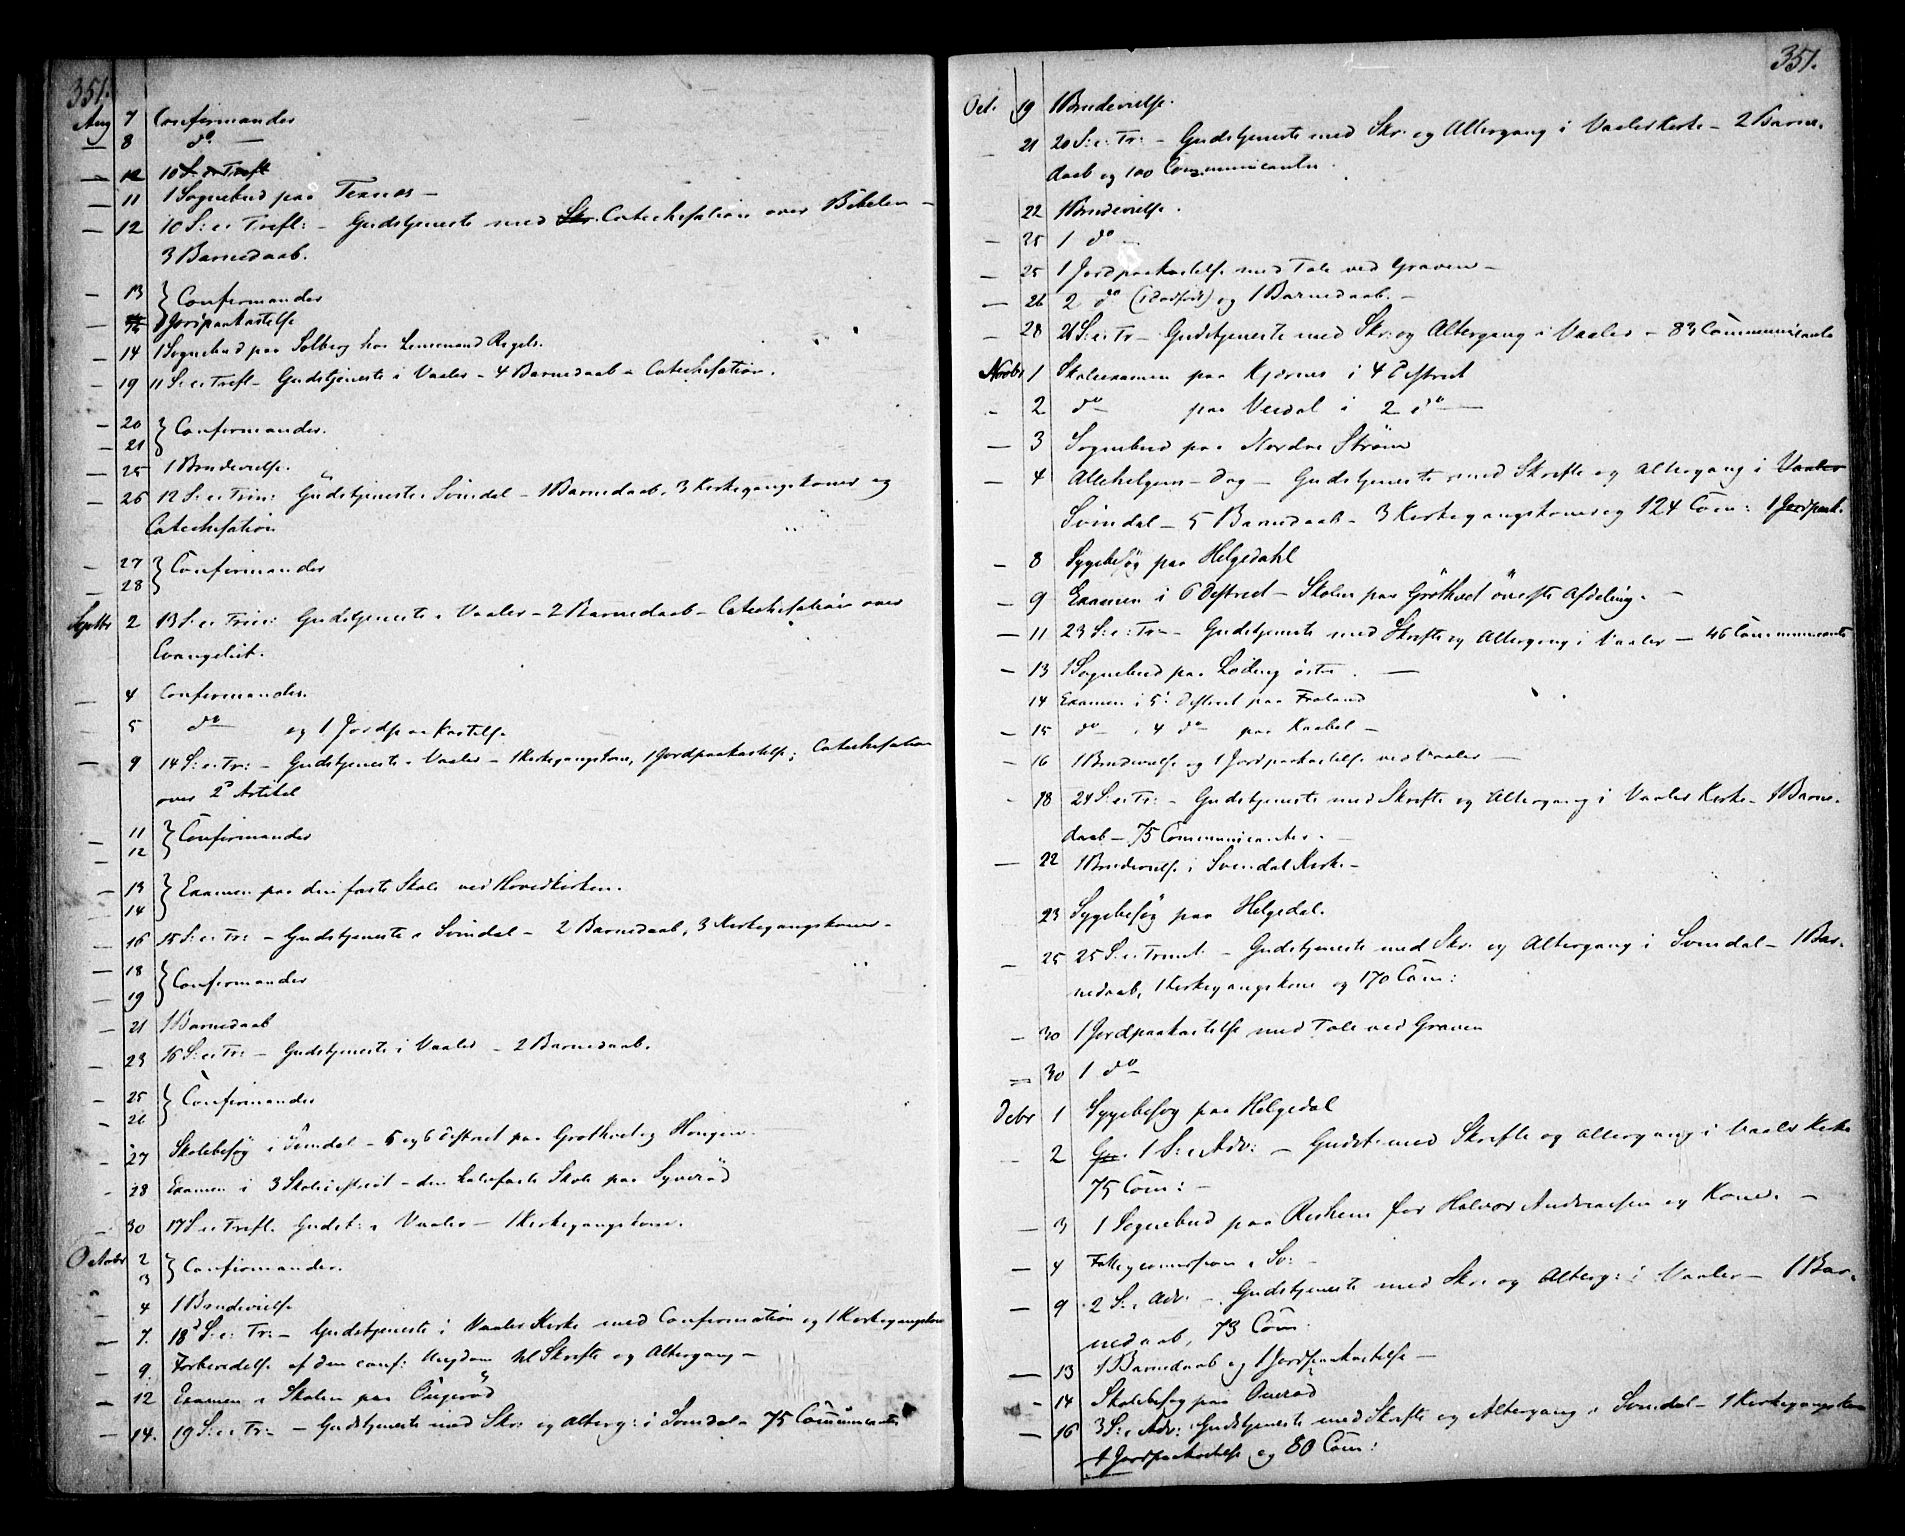 351.
Aug 7 Confirmander
— 8 do —
— 12 10 S. e. Trefl
— 11 1 Sognebud paa Texnæs —
— 12 10 S: e: Trefl: — Gudstjeneste med Skr. Catechisation over Bibelen —
3 Barnedaab.
— 13 } Confirmander
— 14 } Jordpaakastelse
— 14 1 Sognebud paa Solberg hos Lensmand Regels.
— 19 11 S: e: Trefl — Gudstjeneste i Vaaler — 4 Barnedaab — Catechisation.
— 20 } Confirmander.
— 21 }
— 25 1 Brudevielse.
— 26 12 S: e: Trin: Gudstjeneste i Svindal — 1 Barnedaab, 3 Kirkegangskoner og
Catechisation
— 27 } Confirmander
— 28 }
Septbr 2 13 S: e: Trin: Gudstjeneste i Vaaler — 2 Barnedaab — Catechisation over
Evangeliet.
— 4 Confirmander.
5 do og 1 Jordpaakastelse
— 9 14 S: e: Tr: — Gudstjeneste i Vaaler — 1 Kirkegangskone, 1 Jordpaakastelse; Catechisation
over 2den Artikel
— 11 } Confirmander
— 12 }
— 13 } Examen paa den faste Skole ved Hovedkirken.
— 14 }
— 16 15 S: e: Tr: — Gudstjeneste i Svindal — 2 Barnedaab, 3 Kirkegangskoner —
— 18 } Confirmander
— 19 }
— 21 1 Barnedaab
— 23 16 S: e: Tr: — Gudstjeneste i Vaaler — 2 Barnedaab.
— 25 } Confirmander
— 26 }
— 27 Skolebesøg i Svindal — 5 og 6 Distrect paa Grøthvet og Hougen.
— 28 Examen i 3 Skoledistrict — den halvfaste Skole paa Syverød
— 30 17 S: e: Trefl. Gudst: i Vaaler — 1 Kirkegangskone.
Octobr 2 } Confirmander.
3 }
— 4 1 Brudevielse
— 7. 18d S: e: Tr: — Gudstjeneste i Vaaler Kirke med Confirmation og 1 Kirkegangskone
— 9. Forberedelse af den conf: Ungdom til Skrifte og Altergang —
— 12 Examen i Skolen paa Augerød
— 14. 19 S: e: Tr: — Gudstjeneste med Skr: og Alterg: i Svindal — 75 Communicanter
351.
Oct. 19 1 Brudevielse.
— 21 20 S: e: Tr: — Gudstjeneste med Skr: og Altergang i Vaaler Kirke — 2 Barne-
daab og 100 Communicanter.
— 22 1 Brudevielse.
— 25 1 do —
— 25 1 Jordpaakastelse med Tale ved Graven —
— 26 2 do (1 dødfødt) og 1 Barnedaab. —
— 28 21 S: e: Tr — Gudstjeneste med Skr: og Altergang i Vaaler — 83 Communicante
Novbr 1 Skoleexamen paa Kjærnes i 4 Distrect
— 2 do paa Veidal i 2 do —
— 3 Sognebud paa Nordre Strøm
— 4 Allehelgens-Dag — Gudstjeneste med Skrifte og Altergang i Vaaler
Svindal — 5 Barnedaab — 3 Kirkegangskoner og 124 Com: 1 Jordpaak.
— 8 Sygebesøg paa Helgedahl
— 9 Examen i 6 Distrect — Skolen paa Grøthvet øverste Afdeling. —
— 11 23 S: e: Tr — Gudstjeneste med Skrifte og Altergang i Vaaler — 46 Communicante
— 13 1 Sognebud paa Løding østre. —
14 Examen i 5te Distrect paa Froland
— 15 do i 4 do paa Knabel —
— 16 1 Brudevielse og 1 Jordpaakastelse ved Vaaler —
— 18 24 S: e: Tr: — Gudstjeneste med Skrifte og Altergang i Vaaler Kirke — 1 Barne-
daab — 75 Communicanter. —
— 22 1 Brudevielse i Svindal Kirke —
23 Sygebesøg paa Helgedal.
— 25 25 S: e: Trinit. — Gudstjeneste med Skr: og Altergang i Svindal — 1 Bar-
nedaab, 1 Kirkegangskone og 170 Com:
— 30 1 Jordpaakastelse med Tale ved Graven
— 30 1 do
Debr 1 Sygebesøg paa Helgedal
— 2 Gu. 1 S: i Adv: — Gudst: med Skrifte og Altergang i Vaaler Kirke
75 Com: —
— 3 1 Sognebud paa Reshem for Halvor Andreassen og Kone. —
— 4 Fattigcommission i Sv: —
— 9 2 S: i Adv. — Gudstjeneste med Skr: og Alterg: i Vaaler — 1 Bar-
nedaab, 73 Com.
— 13 1 Barnedaab og 1 Jordpaakastelse —
— 14 Skolebesøg paa Overød
— 16 3 S: i Adv: Gudstjeneste med Skrifte og Altergang i Svindal — 1 Kirkegangskone
1 Jordpaakastelse og 80 Com: